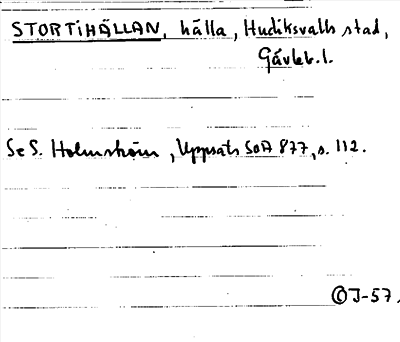 STORTIHÄLLAN, hälla, Hudiksvalls stad,
Gävleb.l.
Se S. Holmström, Uppsats SOA 877, s. 112.
© J-57.